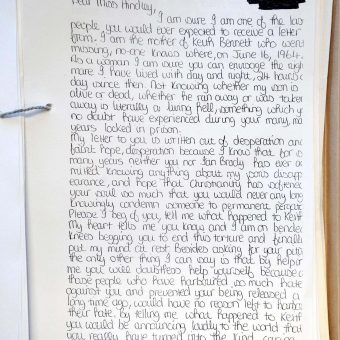 Dear Miss Hindley,
I am sure I am one of the las
people, you would ever expected to receive a letter
from. I am the mother of Keith Bennett who went
missing, no-one knows where, on June 16, 1964.
As a woman I am sure you can envisage the nigh
mare I have lived with day and night, 24 hours
day, since then. Not knowing whether my son is
alive or dead, whether he ran away or was taken
away is literally a living hell, something which y
no doubt have experienced during your many, ma
years locked in prison.
My letter to you is written out of desperation an
faint hope, desperation because I know that for
many years neither you nor Ian Brady has ever a
mitted knowing anything about my sons disapp
earance, and hope that Christianity has softened
your soul so much that you would never any lon
knowingly condemn someone to permanent
Please I beg of you, tell me what happened to Keit
My heart tells me you know and I am on bended
knees begging you to end this torture and finall
put my mind at rest. Besides asking for your
the only other thing I can say is that by helpin
me you will doubtless help yourself because
those people who have harboured so much hate
against you and prevented your being released a
long time ago, would have no reason left to harbo
their hate. By telling me what happened to Keit
you would be announcing loudly to the world tha
you really have turned into the kind,